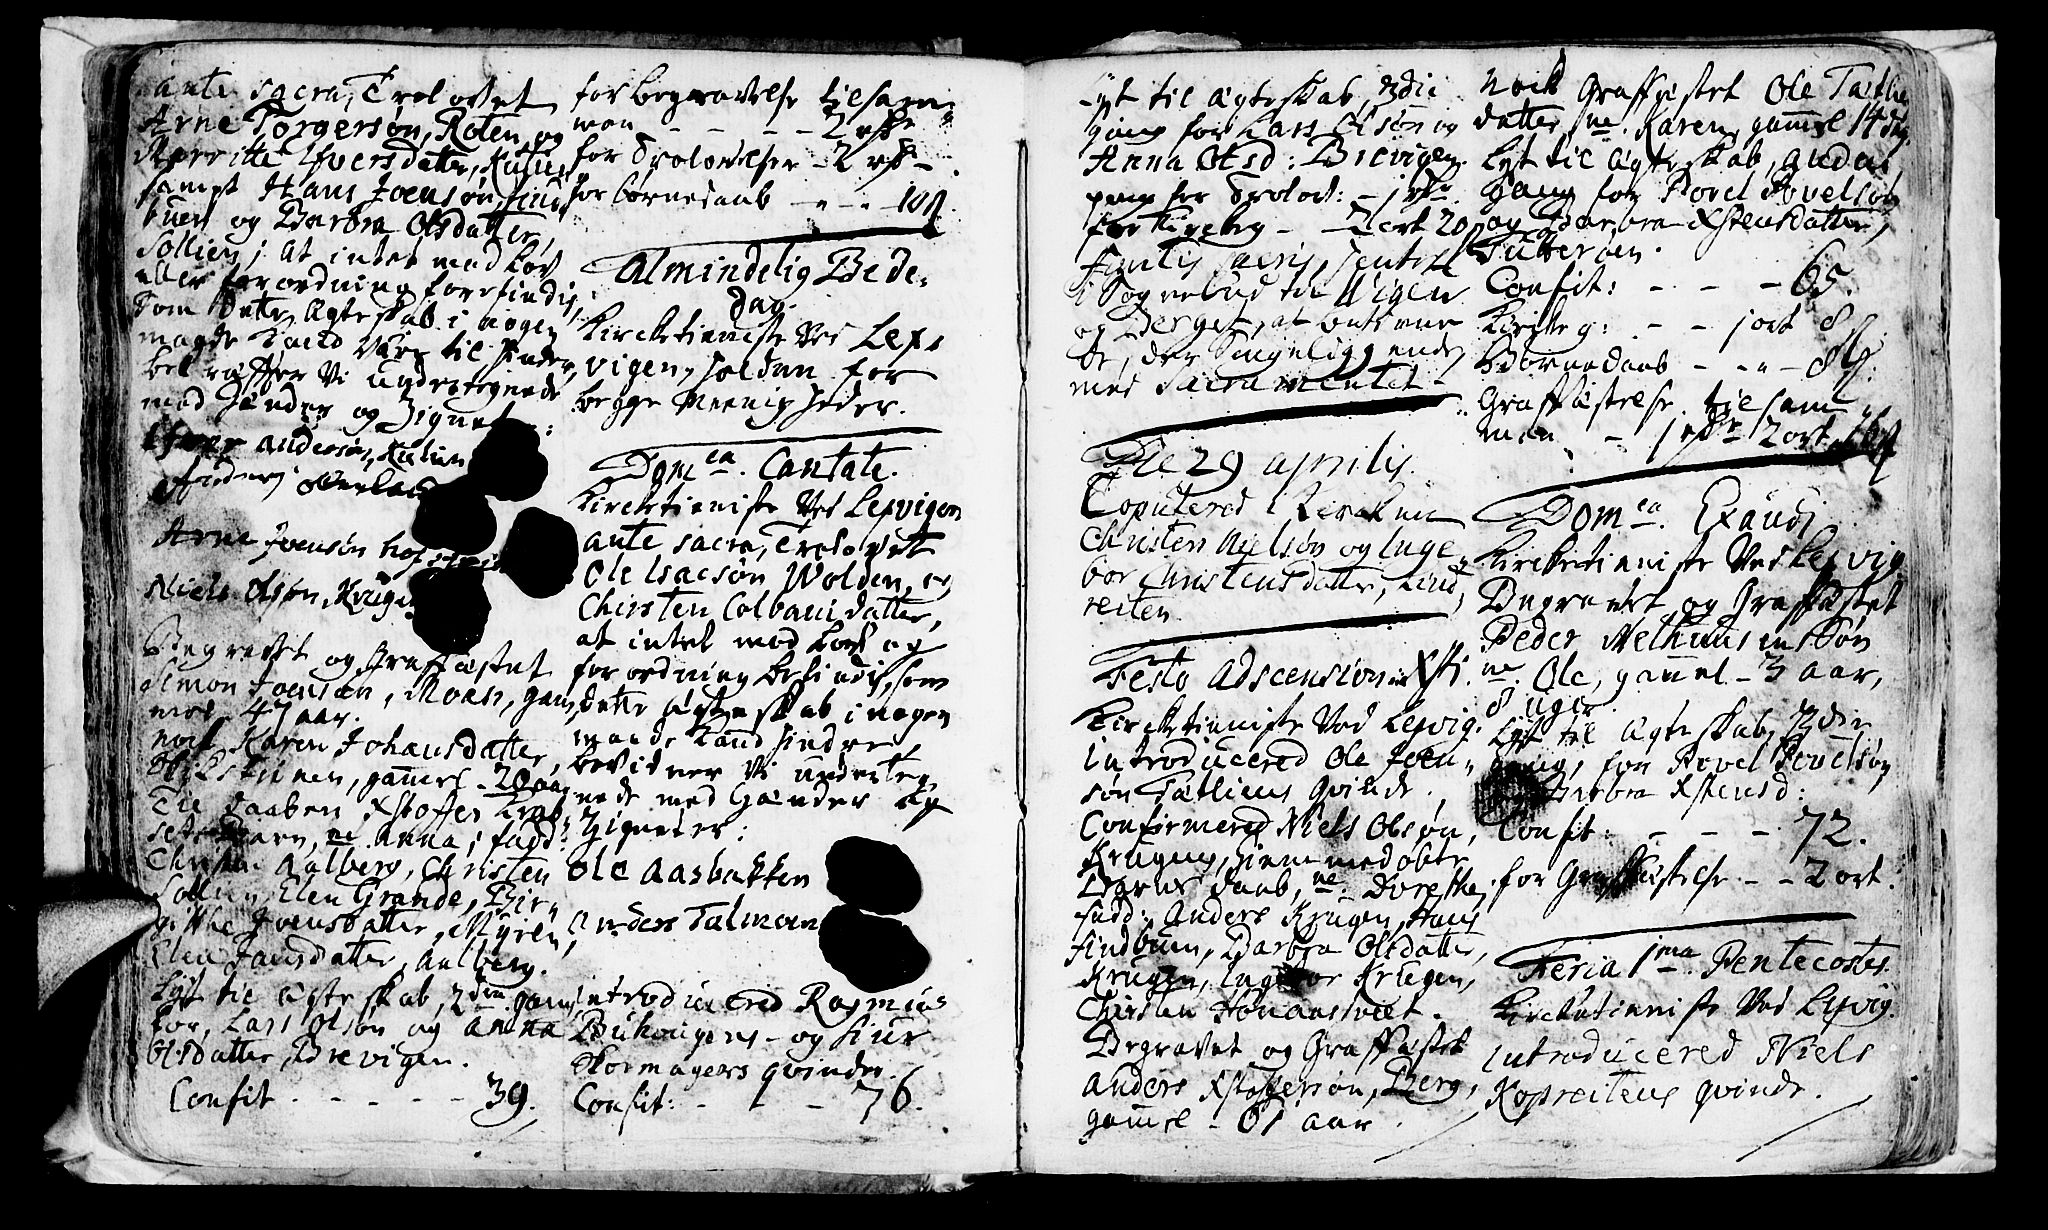 ante sacra, Trolovet
Arne Torgersøn, Roten og
Marrite Ifversdatter, Kulien
sampt Hans Joensøn, find
buen og Barbra Olsdatter,
Sollien; at intet mod Lov
eller forordning forefindis,
som dette Ægteskab i nogen
maade kand være til hinder,
bekræffter Vi underteignede
med Hænder og Zigneter:
Ifver Andersøn, Kulien
Arne Joensøn
Niels Olsøn, Krugen
Begravet og Graffæstet
Simon Joensøn, Moan, gam
mel 47 aar.
noch Karen Johansdatter,
gammel 20 aar
Til daaben Xstoffer
barn, ne. Anna; fadd:
Aalberg, Christen
Sollien, Elen Grande, Bir-
gitthe Joensdatter, Myren,
Elen Jansdatter, Aalberg.
Lyst til Ægteskab, 2den gang
for, Lars Olsøn og Anna
Olsdatter, Brevigen.
Confit - - - - - 39.
for begravelse tilsam
men - - - - 2 rdr
for Trolovelser - 2 rdr -
for børnedaab - " - 10 ß.
Almindelig Bede-
dag.
Kircketieniste Ved Lex-
vigen, holden for
begge Meenigheder.
Domca. Cantate.
Kircketieniste Ved Lexvigen
ante sacra, Trolovet
Ole Isacsøn Wolden, og
Chirsten Colbansdatter,
at intet mod Lov og
forordning befindis, som
dette Ægteskab i nogen
maade kand hindre
bevidner Vi underteg-
nede med Hænder og
Zigneter:
Ole Aasbakken
Anders Talmoen
Introducered Rasmus
Buhaugens - og Siur
Skomagers qvinder.
Confit: - - - 76.
Lyst til Ægteskab, 3die
gang for Lars Olsøn og
Anna Olsd: Brevigen.
peng for Trolov: - 1 rdr
for Kirkeg - 2 ort 20
Finitis sacris, hentet
i Sognebud til Vigen
og Berget, at betiene
de, der Sengeliggende
med Sacramentet -
Die 29 Aprilis.
Copulered i Kircken
Christen Nielsøn og Inge-
bor Christensdatter, Lind-
reiten.
Festo Adscensionis Xsti.
Kircketieniste Ved Lexvig.
Introducered Ole Joen-
søn Tætliens qvinde.
Confirmered Niels Olsøn,
Krugens, hiemmedøbte
Pigens daab, ne. Dorethe,
fadd: Anders Krugen, Hans
findbuen, Barbra Olsdatter,
Krugen, Ingebor Krugen,
Chirsten Hønansveet.
Begravet og Graffæstet
Anders Xstoffersøn, Berg,
gammel - 61 aar.
Noch Graffæstet Ole Tætlie
datter, ne. Karen, gammel 14 dag.
Lyst til Ægteskab, anden
gang for Povel Povelsøn
og Barbra Xstensdatter,
Tutterøen.
Confit: - - - 65.
Kirkeg: - - 1 ort 8 ß.
Børnedaab - - " - 8 ß:
Graffæstelse tilsam
men - 1 rdr 2 ort
Domca. Exaudi
Kircketieniste Ved Lexvig
Begravet og Graffæstet
Peder Melhuus en Søn
ne. Ole, gammel - 3 aar,
8 uger.
Lyst til Ægteskab, 3die
gang, for Povel Povelsøn
Barbra Xstensd:
Confit: - - - 72.
for Graffæstelse - - 2 ort.
Feria 1ma. Pentecostes
Kircketieniste Ved Lexvig.
Introducered Niels
Kopreitens qvinde.